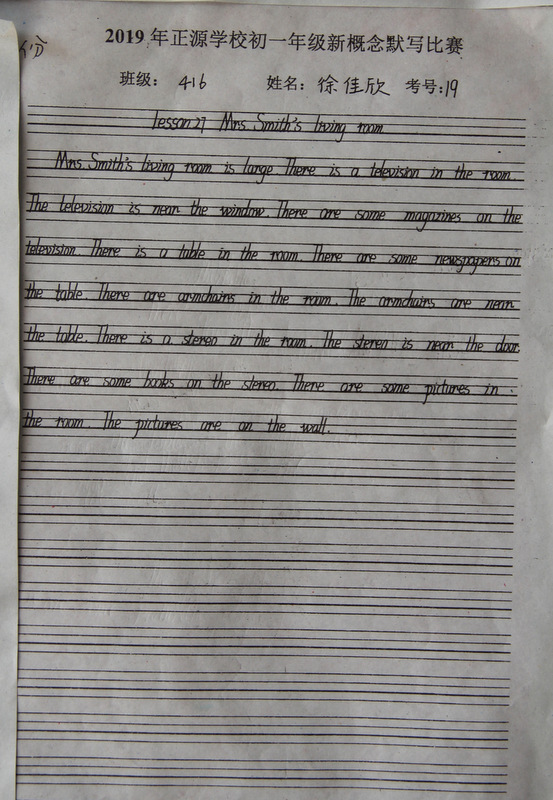 2019年正源学校初一年级新概念默写比赛
班级: 416 姓名: 徐佳欣 考号:19
Lesson 27 Mrs Smith's living room
Mrs. Smith's living room is large. There is a television in the room.
The television is near the window. There are some magazines on the
television. There is a table in the room. There are some newspapers on
the table. There are armchairs in the room. The armchairs are near
the table. There is a stereo in the room. The stereo is near the door.
There are some books on the stereo. There are some pictures in
the room. The pictures are on the wall.